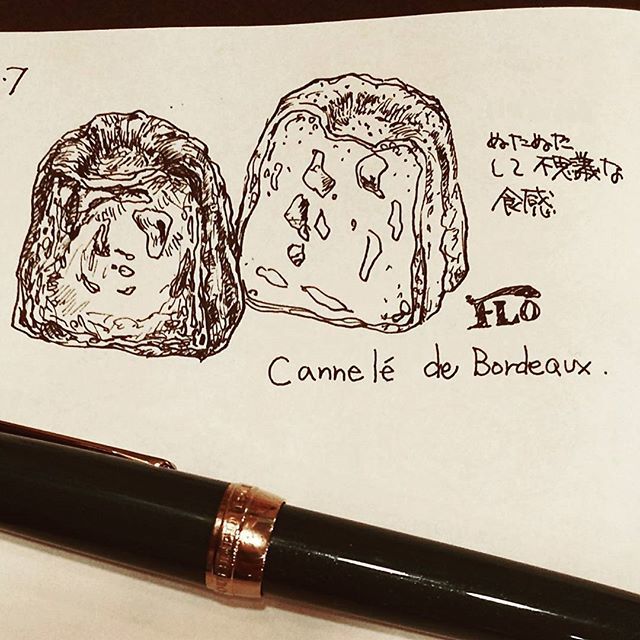 .7
ぬたぬた
して不思議な
食感
FLO
Cannelé de Bordeaux.